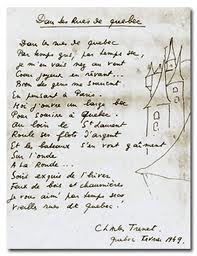 Dans les Rues de Quebec
Dans les rues de Quebec
Par temps gris, par temps sec,
je m'en vais nez au vent
Coeur joyeux en rêvant...
Bien des gens me sourient
En pensant à Paris.
Moi j'ouvre un large bec
Pour sourire à Québec.
Au loin le St Laurent
Roule ses flots d'argent
Et les bateaux s'en vont gaiment
Sur l'onde
A la Ronde...
Soit exquis de l'hiver
Feux de bois et chaumières
Je vous aime par temps sec
Vieilles rues de Quebec!
Charles Trenet.
Quebec Fevrier 1949.